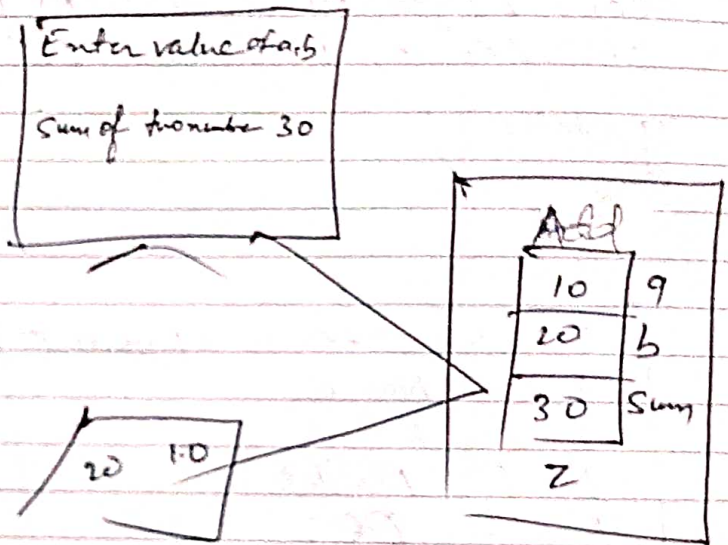 Enter value of a,b
Sum of two number 30
Add
10 a
20 b
30 Sum
2
20 10